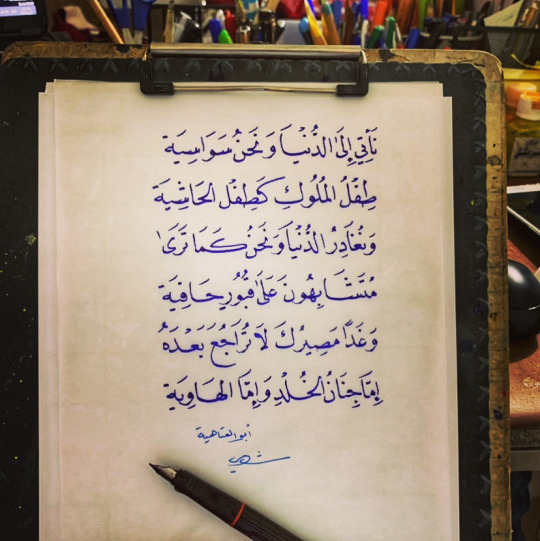 نَأْتِي إِلَى الدُّنْيَا وَنَحْنُ سَوَاسِيَة
طِفْلُ المُلُوكِ كَطِفْلِ الحَاشِيَة
وَنُغَادِرُ الدُّنْيَا وَنَحْنُ كَمَا تَرَى
مُتَشَابِهُونَ عَلَى قُبُورٍ حَافِيَة
وَغَدًا مَصِيرُكَ لَا تُرَاجُعَ بَعْدَهُ
إِمَّا جِنَانُ الخُلْدِ وَإِمَّا الهَاوِيَة
أبو العتاهية